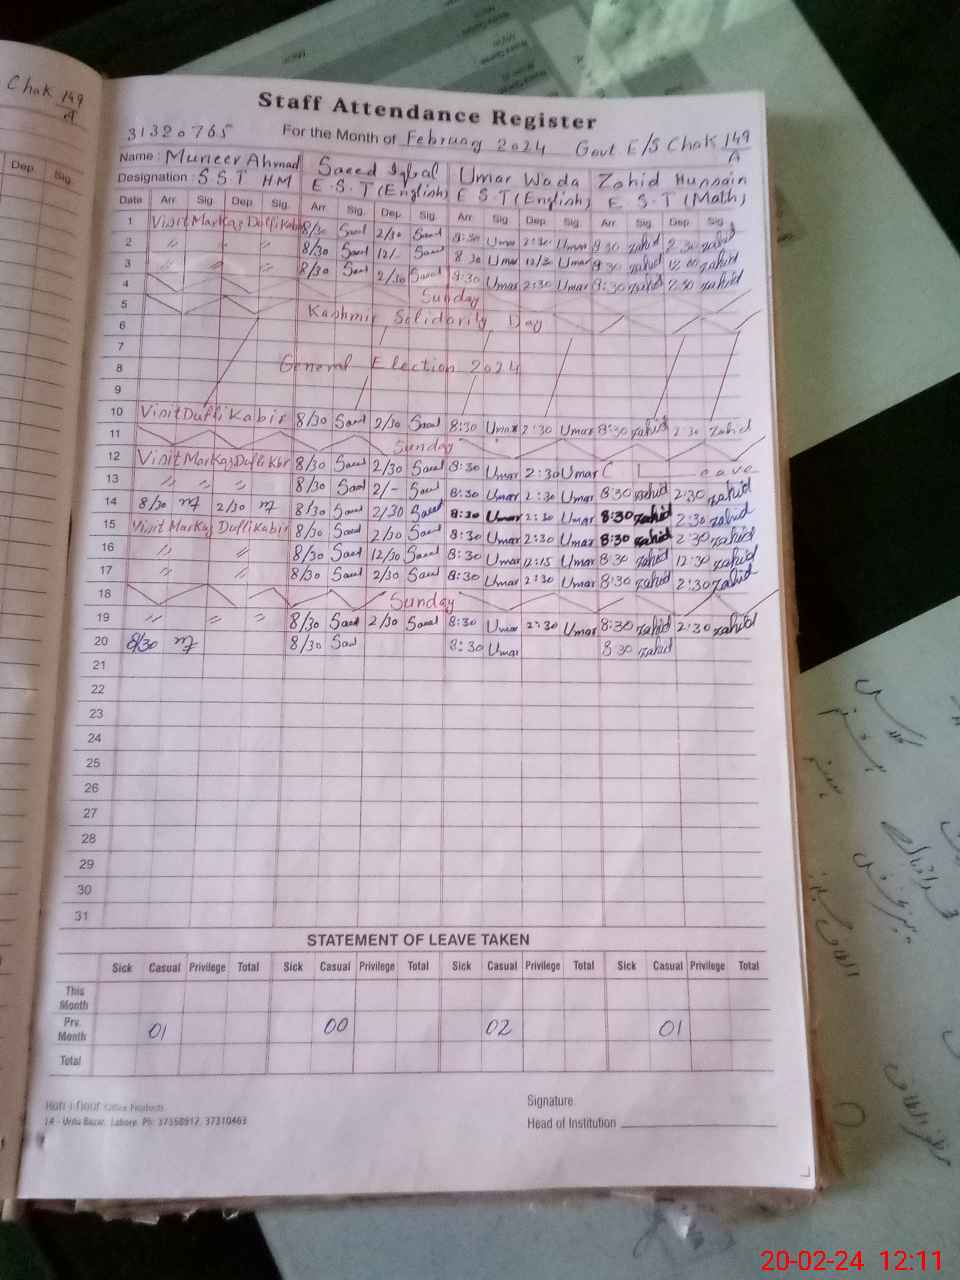 Chak 149
Dep. Sig.
Staff Attendance Register
31320765 For the Month of February 2024 Govt E/S Chak 149/A
Name : Muneer Ahmad Saeed Iqbal Umar Wada Zahid Hussain
Designation : S S T HM E. S. T (English) E S. T (English) E S. T (Math)
Date Arr. Sig. Dep. Sig. Arr. Sig. Dep. Sig. Arr. Sig. Dep. Sig. Arr. Sig. Dep. Sig.
1 Visit Markaz Dufli Kabir 8/30 Saed 2/30 Saed 8:30 Umar 2:30 Umar 8:30 zahid 2:30 zahid
2 〃 〃 8/30 Saed 12/- Saed 8:30 Umar 12/30 Umar 8:30 zahid zahid
3 〃 〃 〃 8/30 Saed 2/30 Saed 8:30 Umar 2:30 Umar 8:30 zahid 2:30 zahid
4 Sunday
5 Kashmir Solidarity Day
6
7
8 General Election 2024
9
10 Visit Dufli Kabir 8/30 Saed 2/30 Saed 8:30 Umar 2:30 Umar 8:30 zahid 2:30 zahid
11 Sunday
12 Visit Markaz Dufli Kbr 8/30 Saed 2/30 Saed 8:30 Umar 2:30 Umar C Leave
13 〃 〃 〃 8/30 Saed 2/- Saed 8:30 Umar 2:30 Umar 8:30 zahid 2:30 zahid
14 8/30 2/30 8/30 Saed 2/30 Saed 8:30 Umar 2:30 Umar 8:30 zahid 2:30 zahid
15 Visit Markaz Dufli Kabir 8/30 Saed 2/30 Saed 8:30 Umar 2:30 Umar 8:30 zahid 2:30 zahid
16 〃 〃 8/30 Saed 12/30 Saed 8:30 Umar 12:15 Umar 8:30 zahid 12:30 zahid
17 〃 〃 8/30 Saed 2/30 Saed 8:30 Umar 2:30 Umar 8:30 zahid 2:30 zahid
18 Sunday
19 〃 〃 〃 8/30 Saed 2/30 Saed 8:30 Umar 2:30 Umar 8:30 zahid 2:30 zahid
20 8/30 8/30 Saed 8:30 Umar 8:30 zahid
21
22
23
24
25
26
27
28
29
30
31
STATEMENT OF LEAVE TAKEN
Sick Casual Privilege Total Sick Casual Privilege Total Sick Casual Privilege Total Sick Casual Privilege Total
This Month
Prv. Month 01 00 02 01
Total
Office Products
14 - Urdu Bazar, Lahore. Ph: 37358917, 37310463
Signature
Head of Institution
20-02-24 12:11